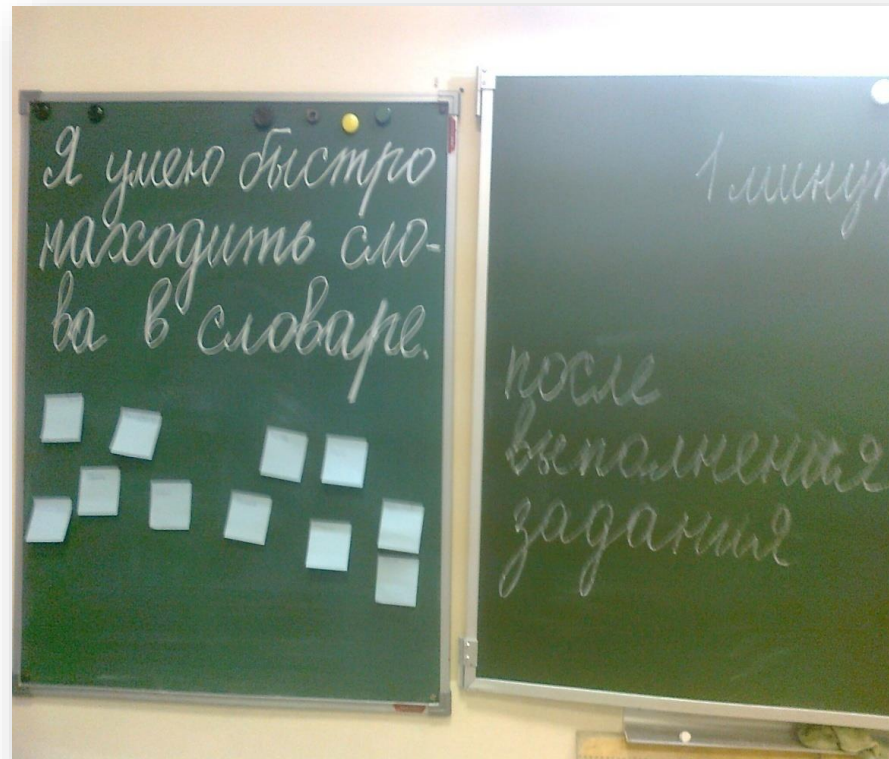 Я умею быстро
находить сло-
ва в словаре.
1 мину
после
выполнения
задания